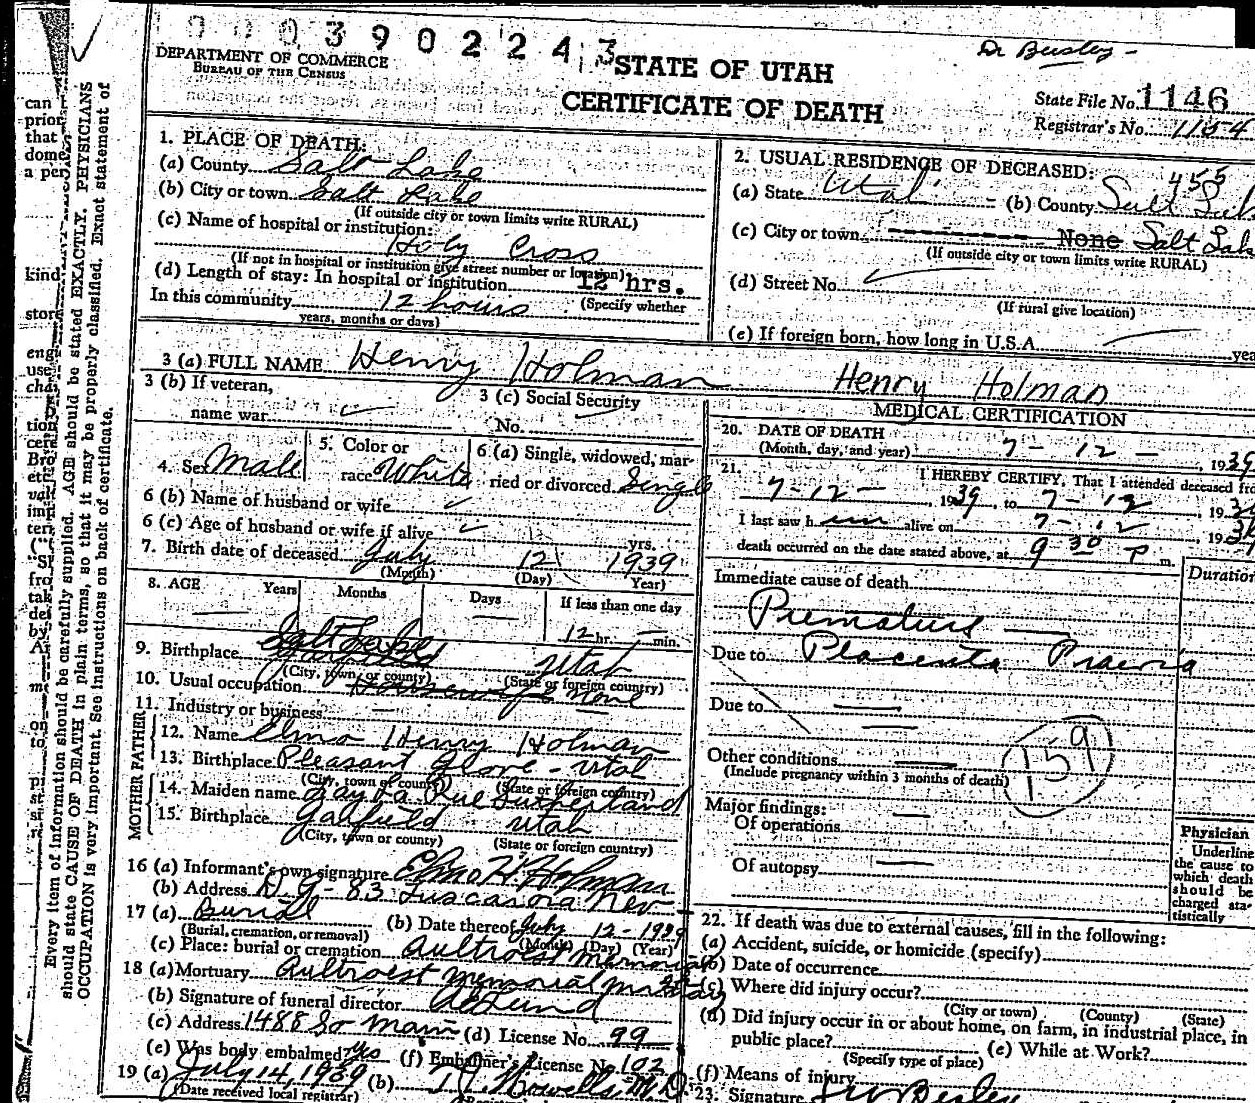 0003902243
Dr Beesley -
DEPARTMENT OF COMMERCE
BUREAU OF THE CENSUS
STATE OF UTAH
CERTIFICATE OF DEATH
State File No. 1146
Registrar's No. 1154
1. PLACE OF DEATH:
(a) County Salt Lake
(b) City or town Salt Lake
(If outside city or town limits write RURAL)
(c) Name of hospital or institution:
Holy Cross
(If not in hospital or institution give street number or location)
(d) Length of stay: In hospital or institution 12 hrs.
In this community 12 hours (Specify whether
years, months or days)
2. USUAL RESIDENCE OF DECEASED: 455
(a) State Utah (b) County Salt Lak
(c) City or town None Salt Lake
(If outside city or town limits write RURAL)
(d) Street No.
(If rural give location)
(e) If foreign born, how long in U.S.A. yea
3 (a) FULL NAME Henry Holman Henry Holman
3 (b) If veteran,
name war
3 (c) Social Security
No.
4. Sex Male
5. Color or
race White
6 (a) Single, widowed, mar-
ried or divorced Single
6 (b) Name of husband or wife
6 (c) Age of husband or wife if alive yrs.
7. Birth date of deceased July 12 1939
(Month) (Day) Year)
8. AGE Years Months Days If less than one day
12 hr. min.
9. Birthplace Salt Lake Garfield Utah
(City, town, or county) (State or foreign country)
10. Usual occupation Housewife None
11. Industry or business
FATHER
12. Name Elmo Henry Holman
13. Birthplace Pleasant Grove - Utah
(City, town or county) (State or foreign country)
MOTHER
14. Maiden name La Rue Sutherland
15. Birthplace Garfield Utah
(City, town or county) (State or foreign country)
16 (a) Informant's own signature Elmo H. Holman
(b) Address 83 Tuscarora Nev
17 (a) Burial (b) Date thereof July 12-1939
(Burial, cremation, or removal) (Month) (Day) (Year)
(c) Place: burial or cremation
18 (a) Mortuary Memorial
(b) Signature of funeral director
(c) Address 1488 So Main (d) License No. 99
(e) Was body embalmed? yes (f) Embalmer's License No. 102
19 (a) July 14, 1939 (b) M.D.
(Date received local registrar)
MEDICAL CERTIFICATION
20. DATE OF DEATH
(Month, day, and year) 7 - 12 - , 1939
21. I HEREBY CERTIFY, That I attended deceased fro
7-12- 1939, to 7-12, 19
I last saw him alive on 7-12, 19
death occurred on the date stated above, at 9 30 P m.
Immediate cause of death Duration
Premature
Due to Placenta Praevia
Due to
Other conditions
(Include pregnancy within 3 months of death)
159
Major findings:
Of operations
Of autopsy
Physician
Underline
the cause to
which death
should be
charged sta-
tistically
22. If death was due to external causes, fill in the following:
(a) Accident, suicide, or homicide (specify)
(b) Date of occurrence
(c) Where did injury occur?
(City or town) (County) (State)
(d) Did injury occur in or about home, on farm, in industrial place, in
public place? (e) While at Work?
(Specify type of place)
(f) Means of injury
23. Signature
Every item of information should be carefully supplied. AGE should be stated EXACTLY. PHYSICIANS
should state CAUSE OF DEATH in plain terms, so that it may be properly classified. Exact statement of
OCCUPATION is very important. See instructions on back of certificate.